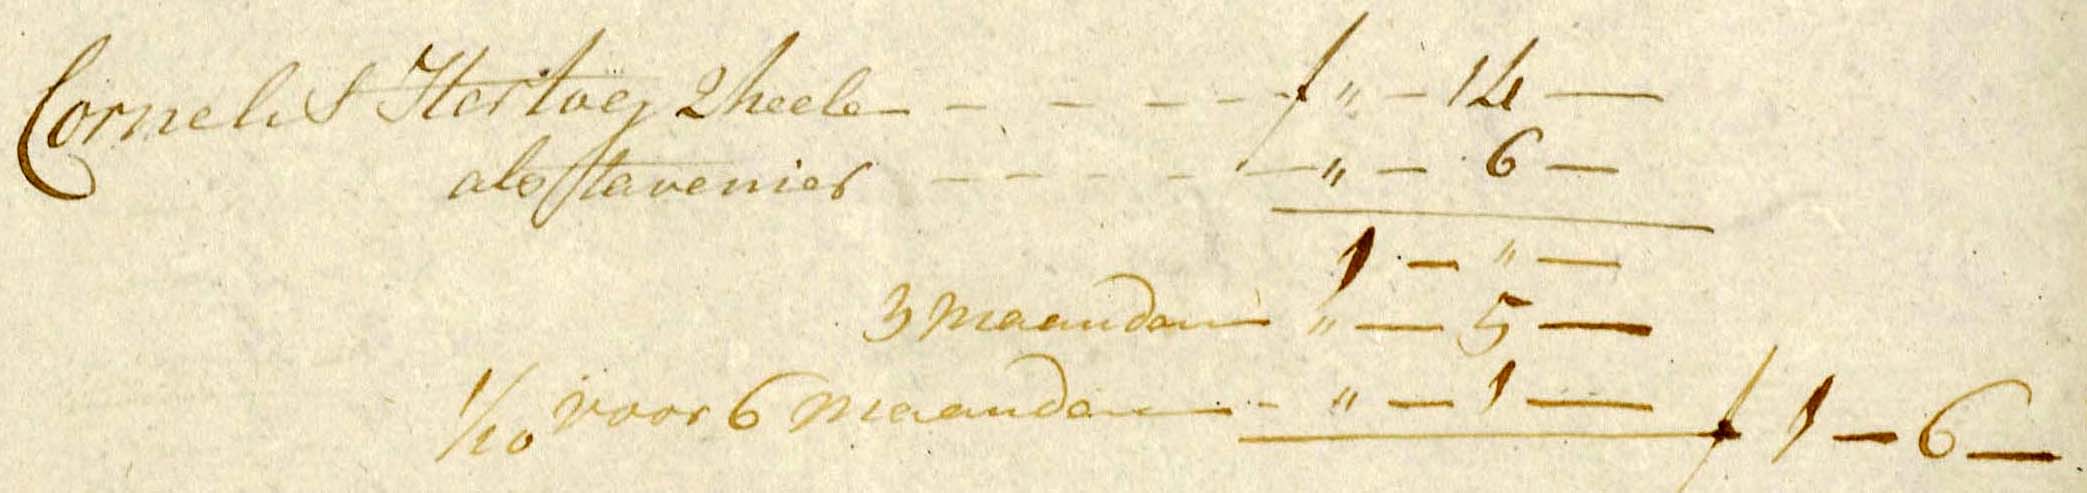 Cornelis Hertoeg 2 heele - - - - - ƒ " - 14 —
als tavenier - - - - - " - 6 —
1 - " —
3 maanden " — 5 —
1/20 voor 6 maanden - " — 1 — ƒ 1 — 6 —